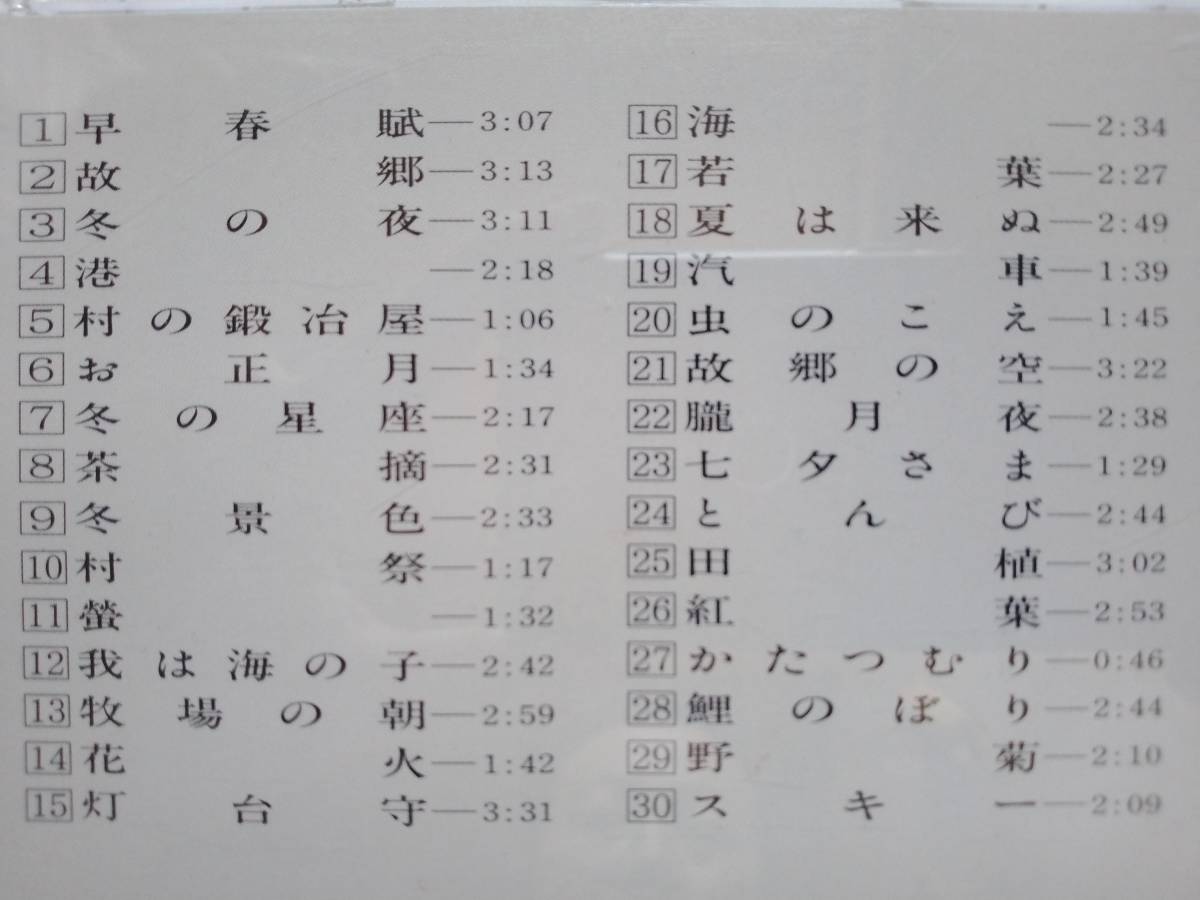 1 早春賦 3:07
2 故郷 3:13
3 冬の夜 3:11
4 港 2:18
5 村の鍛冶屋 1:06
6 お正月 1:34
7 冬の星座 2:17
8 茶摘 2:31
9 冬景色 2:33
10 村祭 1:17
11 螢 1:32
12 我は海の子 2:42
13 牧場の朝 2:59
14 花火 1:42
15 灯台守 3:31
16 海 2:34
17 若葉 2:27
18 夏は来ぬ 2:49
19 汽車 1:39
20 虫のこえ 1:45
21 故郷の空 3:22
22 朧月夜 2:38
23 七夕さま 1:29
24 とんび 2:44
25 田植 3:02
26 紅葉 2:53
27 かたつむり 0:46
28 鯉のぼり 2:44
29 野菊 2:10
30 スキー 2:09